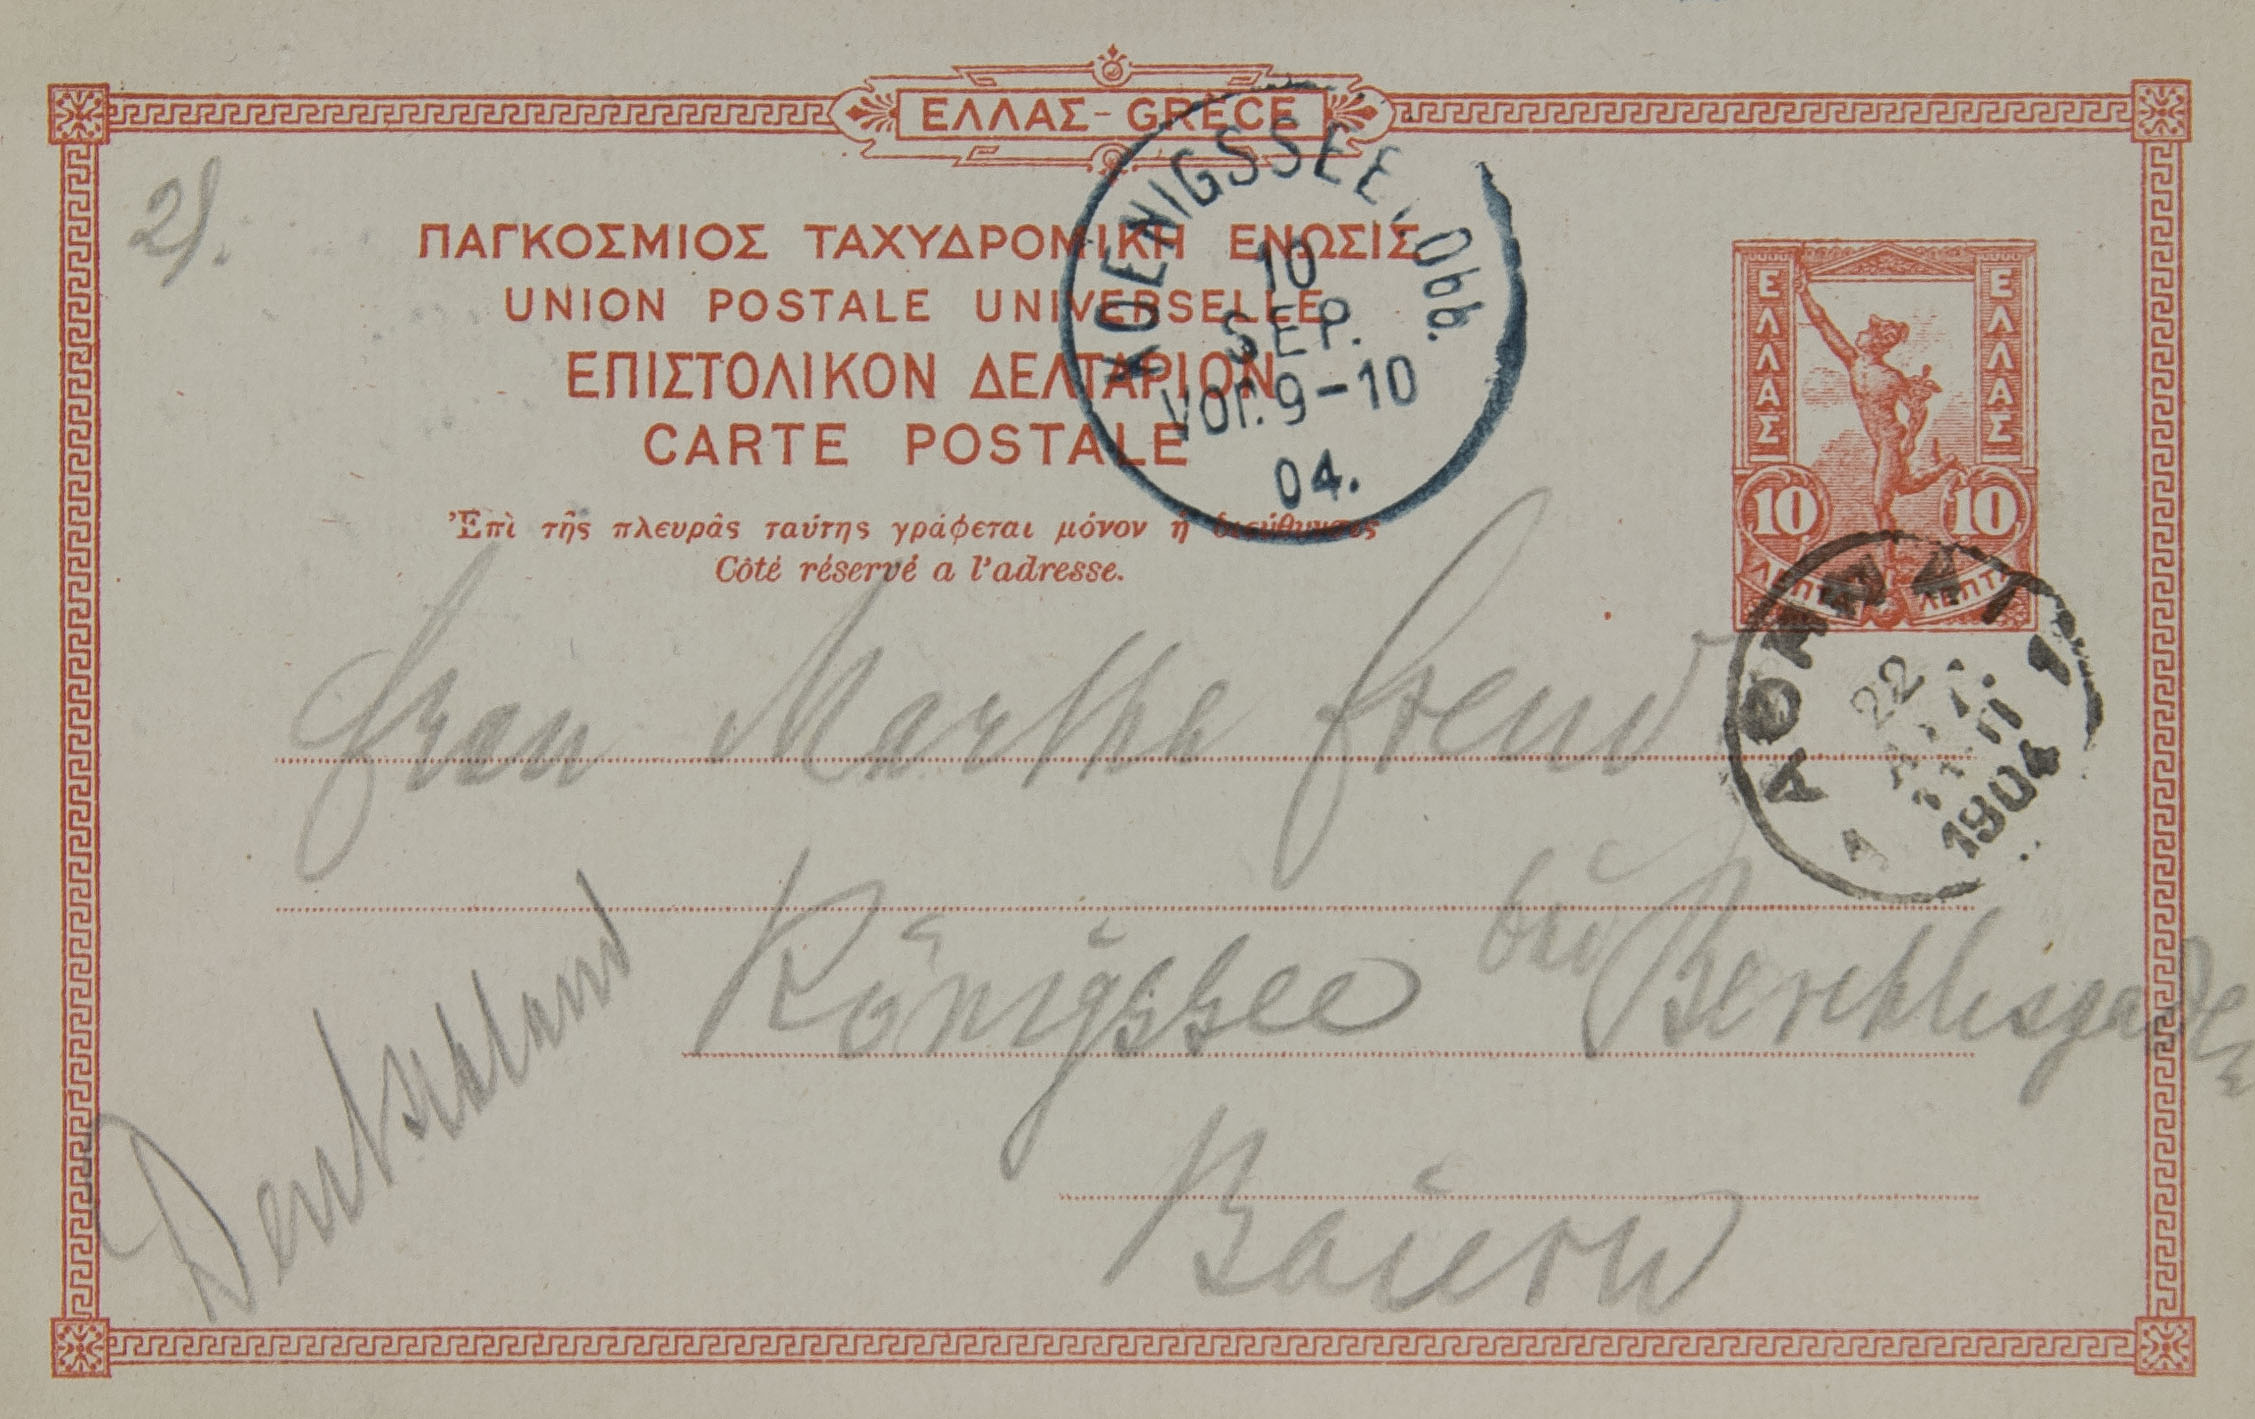 ΕΛΛΑΣ - GRECE
2).
ΠΑΓΚΟΣΜΙΟΣ ΤΑΧΥΔΡΟΜΙΚΗ ΕΝΩΣΙΣ
UNION POSTALE UNIVERSELLE
ΕΠΙΣΤΟΛΙΚΟΝ ΔΕΛΤΑΡΙΟΝ
CARTE POSTALE
Ἐπὶ τῆς πλευρᾶς ταύτης γράφεται μόνον ἡ διεύθυνσις
Côté réservé a l'adresse.
KOENIGSSEE, Obb.
10
SEP.
Vor. 9-10
04.
ΕΛΛΑΣ
ΕΛΛΑΣ
10 10
ΛΕΠΤΑ ΛΕΠΤΑ
ΑΘΗΝΑΙ
22
ΑΥΓ.
1904
1
Frau Martha Freud
Königssee bei Berchtesgaden
Baiern
Deutschland